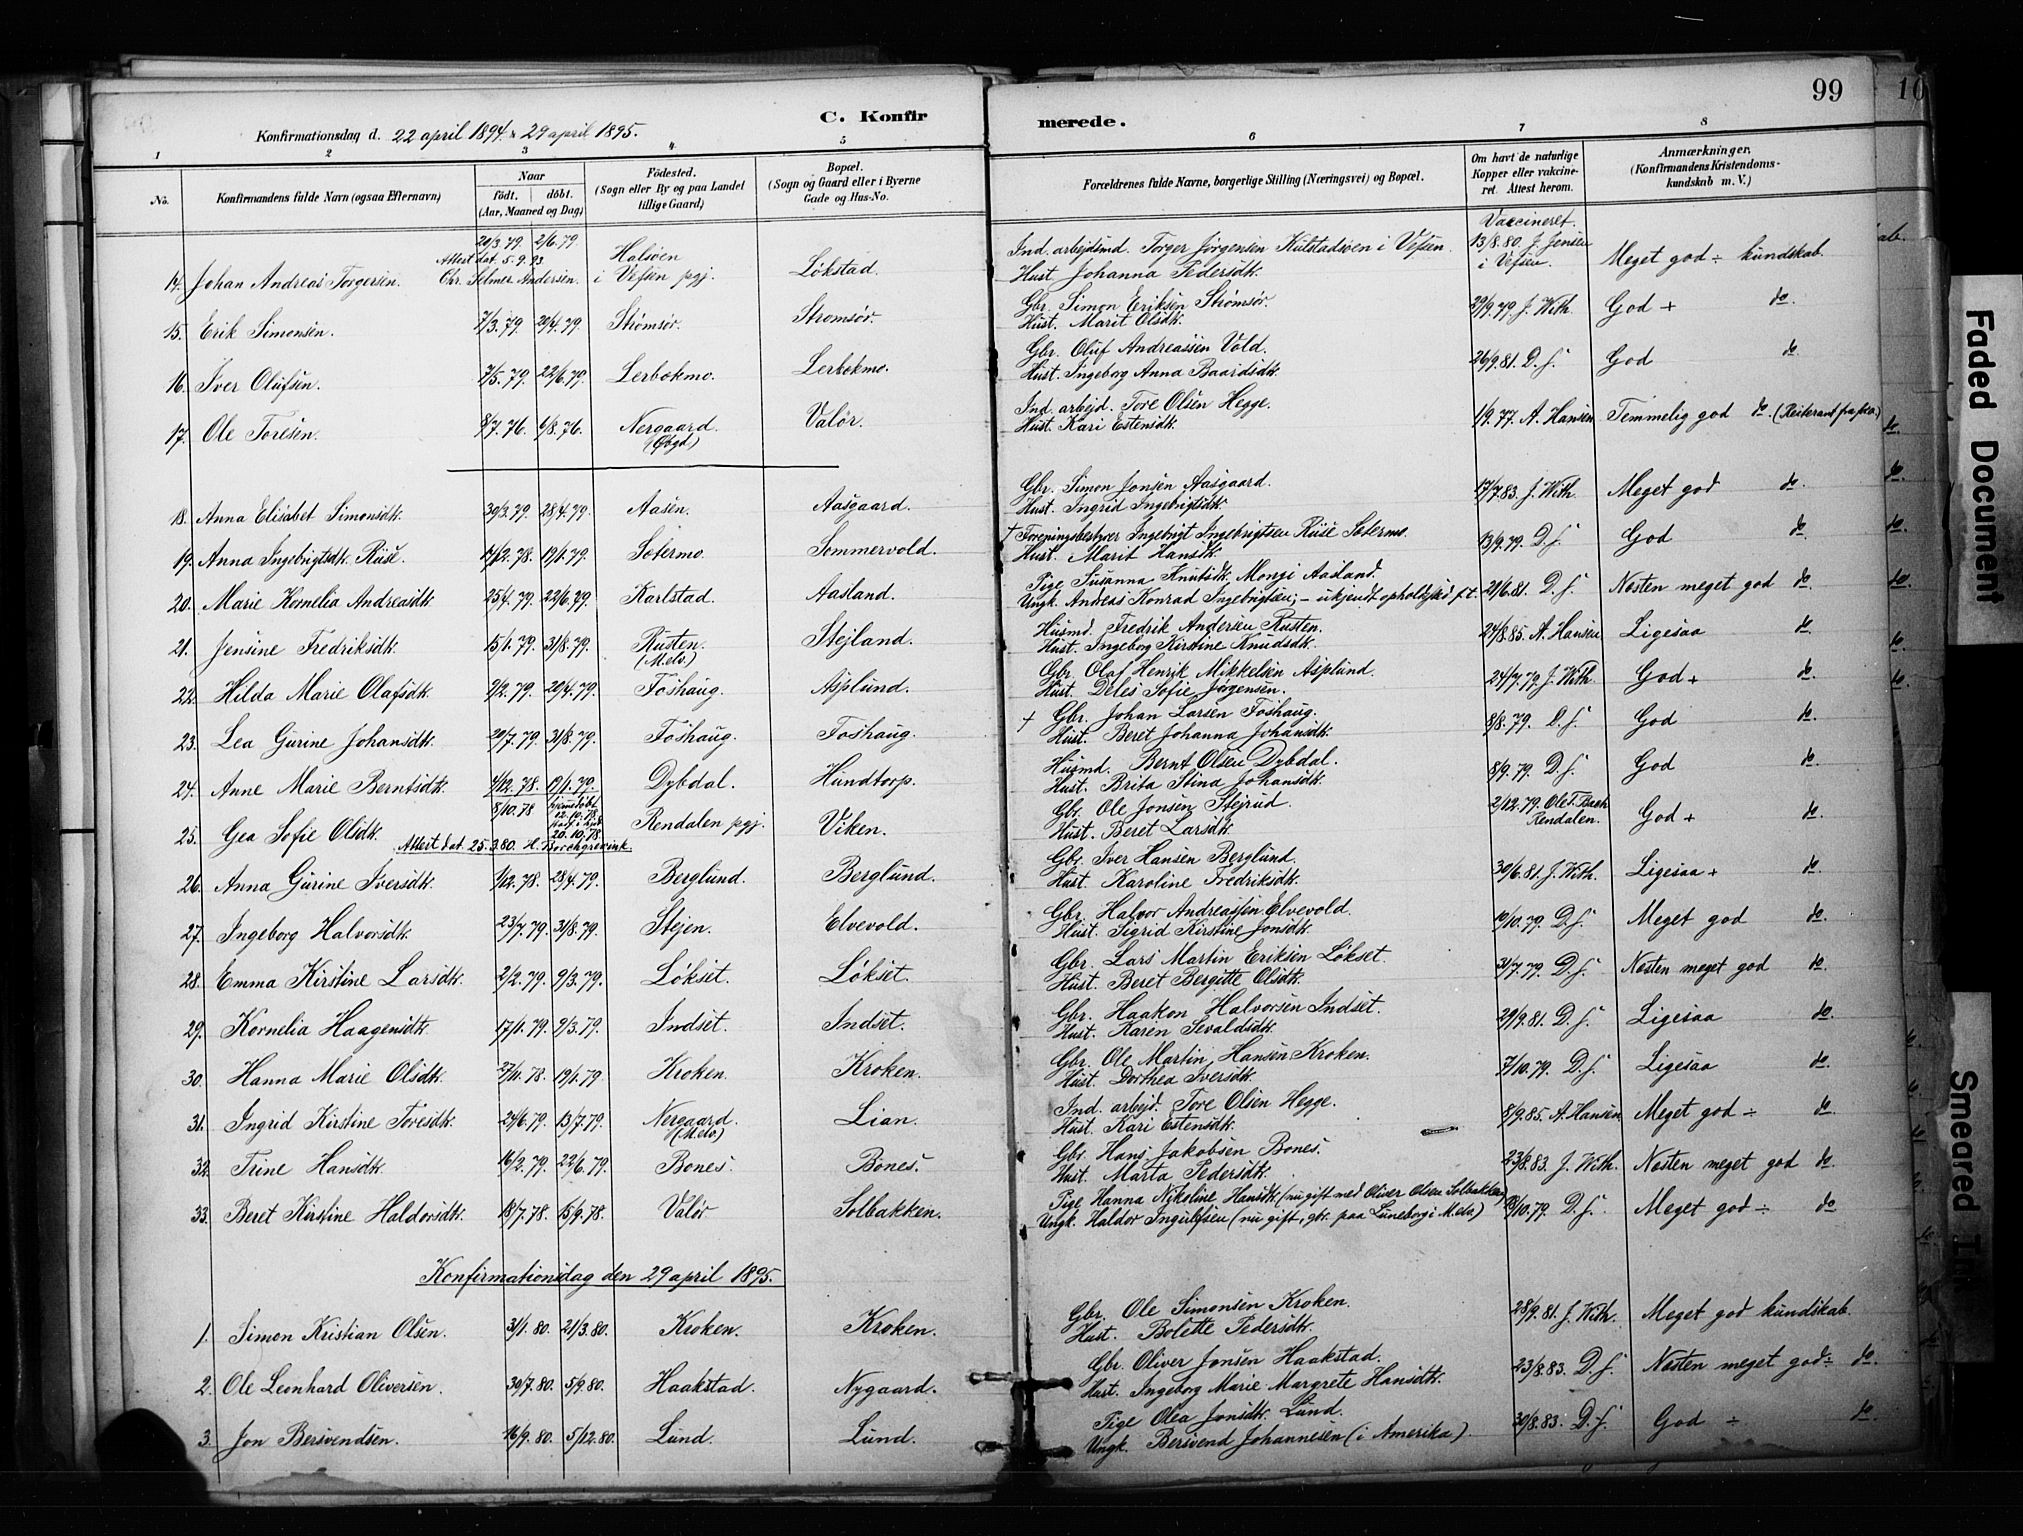 99
C. Konfirmerede.
Konfirmationsdag d. 22 april 1894 & 29 april 1895.
1 2 3 4 5 6 7 8
No. Konfirmandens fulde Navn (ogsaa Efternavn) Naar Født. døbt. (Aar, Maaned og Dag) Fødested. (Sogn eller By og paa Landet tillige Gaard) Bopæl. (Sogn og Gaard eller i Byerne Gade og Hus-No. Forældrenes fulde Navne, borgerlige Stilling (Næringsvei) og Bopæl. Om havt de naturlige Kopper eller vakcineret. Attest herom. Anmærkninger. (Konfirmandens Kristendomskundskab m. V.)
Vaccineret.
14. Johan Andreas Torgersen. 20/3.79. 2/6.79. Attest dat. 5.9.93. Chr. Selmer Andersen. Halsøen i Vefsen pgj. Løkstad. Ind. arbejdsmd. Torger Jørgensen Kulstadsøen i Vefsen. 13/8.80. J. Jensen i Vefsen. Meget god ÷ kundskab.
Hust Johanna Pedersdtr.
15. Erik Simonsen. 7/3.79. 20/4.79. Strømsør. Strømsør. Gbr. Simon Eriksen Strømsør. 29/9.79. J. With. God + do.
Hust. Marit Olsdtr.
16. Iver Olufsen. 7/5.79. 22/6.79. Lerbekmo. Lerbekmo. Gbr. Oluf Andreassen Vold. 26/9.81. D. s. God do
Hust. Ingeborg Anna Baardsdtr.
17. Ole Toresen. 8/7.76. 6/8.76. Nergaard. (Øvgd) Valør. Ind. arbejd. Tore Olsen Hegge. 1/9.77. A. Hansen Temmelig god do.
Hust. Kari Estensdtr.
18. Anna Elisabet Simonsdtr. 30/3.79. 28/4.79. Aasen. Aasgaard. Gbr. Simon Jonsen Aasgaard. 17/7.83. J. With. Meget god do.
Hust. Ingrid Ingebrigtsdtr.
19. Anna Ingebrigtsdtr. Rise. 14/12.78. 19/1.79. Sætermo. Sommervold. † Foreningsbestyrer Ingebrigt Ingebrigtsen Rise Sætermo. 13/9.79. D. s. God do
Hust. Marit Hansdtr.
20. Marie Kornelia Andreasdtr. 25/4.79. 22/6.79. Karlstad. Aasland. Pige Susanna Knutsdtr. Mongi Aasland. 21/6.81. D. s. Næsten meget god do.
Ungk. Andreas Konrad Ingebrigtsen; - ukjendt opholdssted f.t.
21. Jensine Fredriksdtr. 15/1.79. 31/8.79. Rusten. (M.elv.) Stejland. Husmd. Fredrik Andersen Rusten. 24/8.85. A. Hansen Ligesaa do
Hust. Ingeborg Kirstine Knudsdtr.
22. Hilda Marie Olafsdtr. 2/2.79. 20/4.79. Foshaug. Asplund. Gbr. Olaf Henrik Mikkelsen Asplund. 24/7.79. J. With. God + do.
Hust. Deles Sofie Jørgensen.
23. Lea Gurine Johansdtr. 20/7.79. 31/8.79. Foshaug. Foshaug. † Gbr. Johan Larsen Foshaug. 8/8.79. D. s. God do
Hust. Beret Johanna Johansdtr.
24. Anne Marie Berntsdtr. 4/12.78. 19/1.79. Dybdal. Hundtorp. Husmd. Bernt Olsen Dybdal. 8/9.79. D. s. God do
Hust. Brita Stina Johansdtr.
25. Gea Sofie Olsdtr. 8/10.78. hjemmedøbt 12.10.78. 20.10.78. Attest dat. 25.3.80. H. Borchgrevink. Rendalen pgj. Viken. Gbr. Ole Jonsen Stejrud. 2/12.79. Ole T. Bach Rendalen. God + do
Hust. Beret Larsdtr.
26. Anna Gurine Iversdtr. 1/12.78. 28/4.79. Berglund. Berglund. Gbr. Iver Hansen Berglund. 30/6.81. J. With. Ligesaa + do
Hust. Karoline Fredriksdtr.
27. Ingeborg Halvorsdtr. 23/7.79. 31/8.79. Stejen. Elvevold. Gbr. Halvor Andreassen Elvevold. 10/10.79. D. s. Meget god do.
Hust. Sigrid Kirstine Jonsdtr.
28. Emma Kirstine Larsdtr. 2/2.79. 9/3.79. Løkset. Løkset. Gbr. Lars Martin Eriksen Løkset. 31/7.79. D. s. Næsten meget god do.
Hust. Beret Bergitte Olsdtr.
29. Kornelia Haagensdtr. 17/1.79. 9/3.79. Indset. Indset. Gbr. Haakon Halvorsen Indset. 29/9.81. D. s. Ligesaa do.
Hust. Karen Sevaldsdtr.
30. Hanna Marie Olsdtr. 27/11.78. 19/1.79 Kroken. Kroken. Gbr. Ole Martin Hansen Kroken. 7/10.79. D. s. Ligesaa do.
Hust. Dorthea Iversdtr.
31. Ingrid Kirstine Toresdtr. 24/6.79. 13/7.79. Nergaard. (M.elv.) Lian. Ind. arbejd. Tore Olsen Hegge. 8/9.85. A. Hansen. Meget god ÷ do
Hust. Kari Estensdtr.
32. Trine Hansdtr. 16/2.79. 22/6.79. Bones. Bones. Gbr. Hans Jakobsen Bones. 23/8.83. J. With. Næsten meget god do.
Hust. Marta Pedersdtr.
33. Beret Kirstine Haldorsdtr. 18/7.78. 15/9.78. Valør Solbakken. Pige Hanna Nikoline Hansdtr. (nu gift med Oliver Olsen Solbakken) /10.79. D. s. Meget god ÷ do
Ungk. Haldor Ingulfsen (nu gift, gbr. paa Lüneborg i M.elv.)
Konfirmationsdag den 29 april 1895.
1. Simon Kristian Olsen. 31/1.80. 21/3.80. Kroken. Kroken. Gbr. Ole Simonsen Kroken. 28/9.81. J. With. Meget god kundskab.
Hust. Bolette Pedersdtr.
2. Ole Leonhard Oliversen. 30/7.80. 5/9.80. Haakstad. Nygaard. Gbr. Oliver Jonsen Haakstad. 23/8.83. D. s. Næsten meget god ÷ do.
Hust. Ingeborg Marie Margrete Hansdtr.
3. Jon Bersvendsen. 16/9.80. 5/12.80. Lund. Lund. Pige Olea Jonsdtr. Lund. 30/8.83. D. s. God ÷ do
Ungk. Bersvend Johannesen (i Amerika).
Faded Document
Smeared In